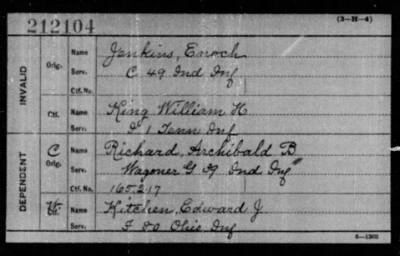 212104
(3-H-4)
INVALID
Orig.
Name Jenkins, Enoch
Serv. C 49 Ind Inf
Ctf. No.
Ctf.
Name King William H
Serv. I 1 Tenn Inf
DEPENDENT
C
Orig.
Name Richard, Archibald B
Serv. Wagoner G 9 Ind Inf
Ctf. No. 165217
Ctf.
Name Kitchen, Edward J.
Serv. I 80 Ohio Inf